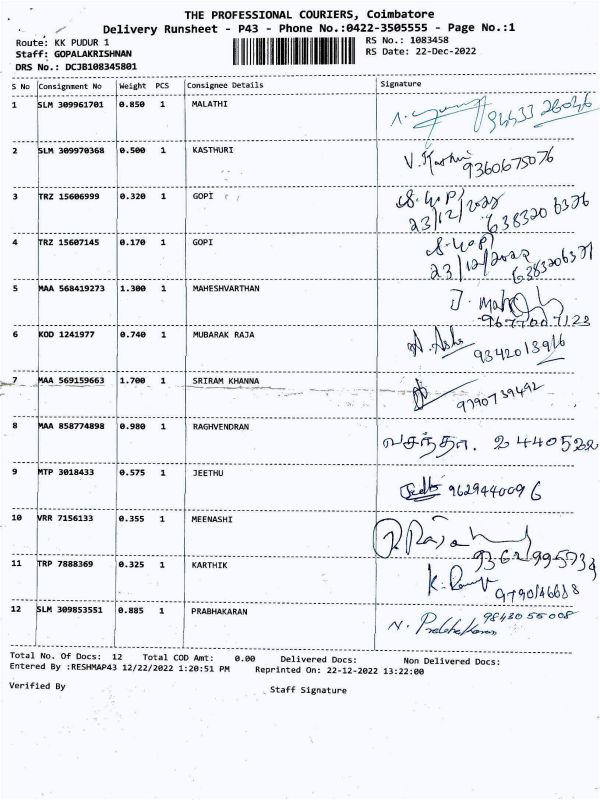 THE PROFESSIONAL COURIERS, Coimbatore
Delivery Runsheet - P43 - Phone No.:0422-3505555 - Page No.:1
Route: KK PUDUR 1 RS No.: 1083458
Staff: GOPALAKRISHNAN RS Date: 22-Dec-2022
DRS No.: DCJB108345801
S No Consignment No Weight PCS Consignee Details Signature
1 SLM 309961701 0.850 1 MALATHI
2 SLM 309970368 0.500 1 KASTHURI V. Kasthuri 9360675076
3 TRZ 15606999 0.320 1 GOPI S. GOPI
23/12/2022 638320 6326
4 TRZ 15607145 0.170 1 GOPI S. GOPI
23/12/2022
5 MAA 568419273 1.300 1 MAHESHVARTHAN
9677007123
6 KOD 1241977 0.740 1 MUBARAK RAJA A. Asha 9342013916
7 MAA 569159663 1.700 1 SRIRAM KHANNA 9790739492
8 MAA 858774898 0.980 1 RAGHVENDRAN வசந்தா. 2440522
9 MTP 3018433 0.575 1 JEETHU Jeethu 9629440096
10 VRR 7156133 0.355 1 MEENASHI
11 TRP 7888369 0.325 1 KARTHIK
12 SLM 309853551 0.885 1 PRABHAKARAN 9843055008
N. Prabhakaran
Total No. Of Docs: 12 Total COD Amt: 0.00 Delivered Docs: Non Delivered Docs:
Entered By :RESHMAP43 12/22/2022 1:20:51 PM Reprinted On: 22-12-2022 13:22:00
Verified By Staff Signature